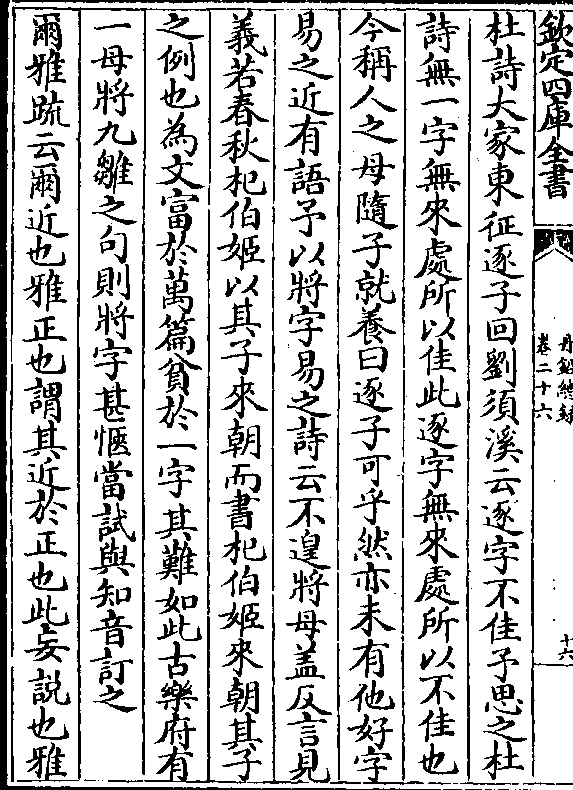 欽定四庫全書
丹鉛總錄
卷二十六
十六
杜詩大家東征逐子回劉須溪云逐字不佳予思之杜
詩無一字無來處所以佳此逐字無來處所以不佳也
今稱人之母隨子就養曰逐子可乎然亦未有他好字
易之近有語予以將字易之詩云不遑將母蓋反言見
義若春秋杞伯姬以其子來朝而書杞伯姬來朝其子
之例也為文富於萬篇貧於一字其難如此古樂府有
一母將九雛之句則將字甚愜當試與知音訂之
爾雅䟽云爾近也雅正也謂其近於正也此妄說也雅